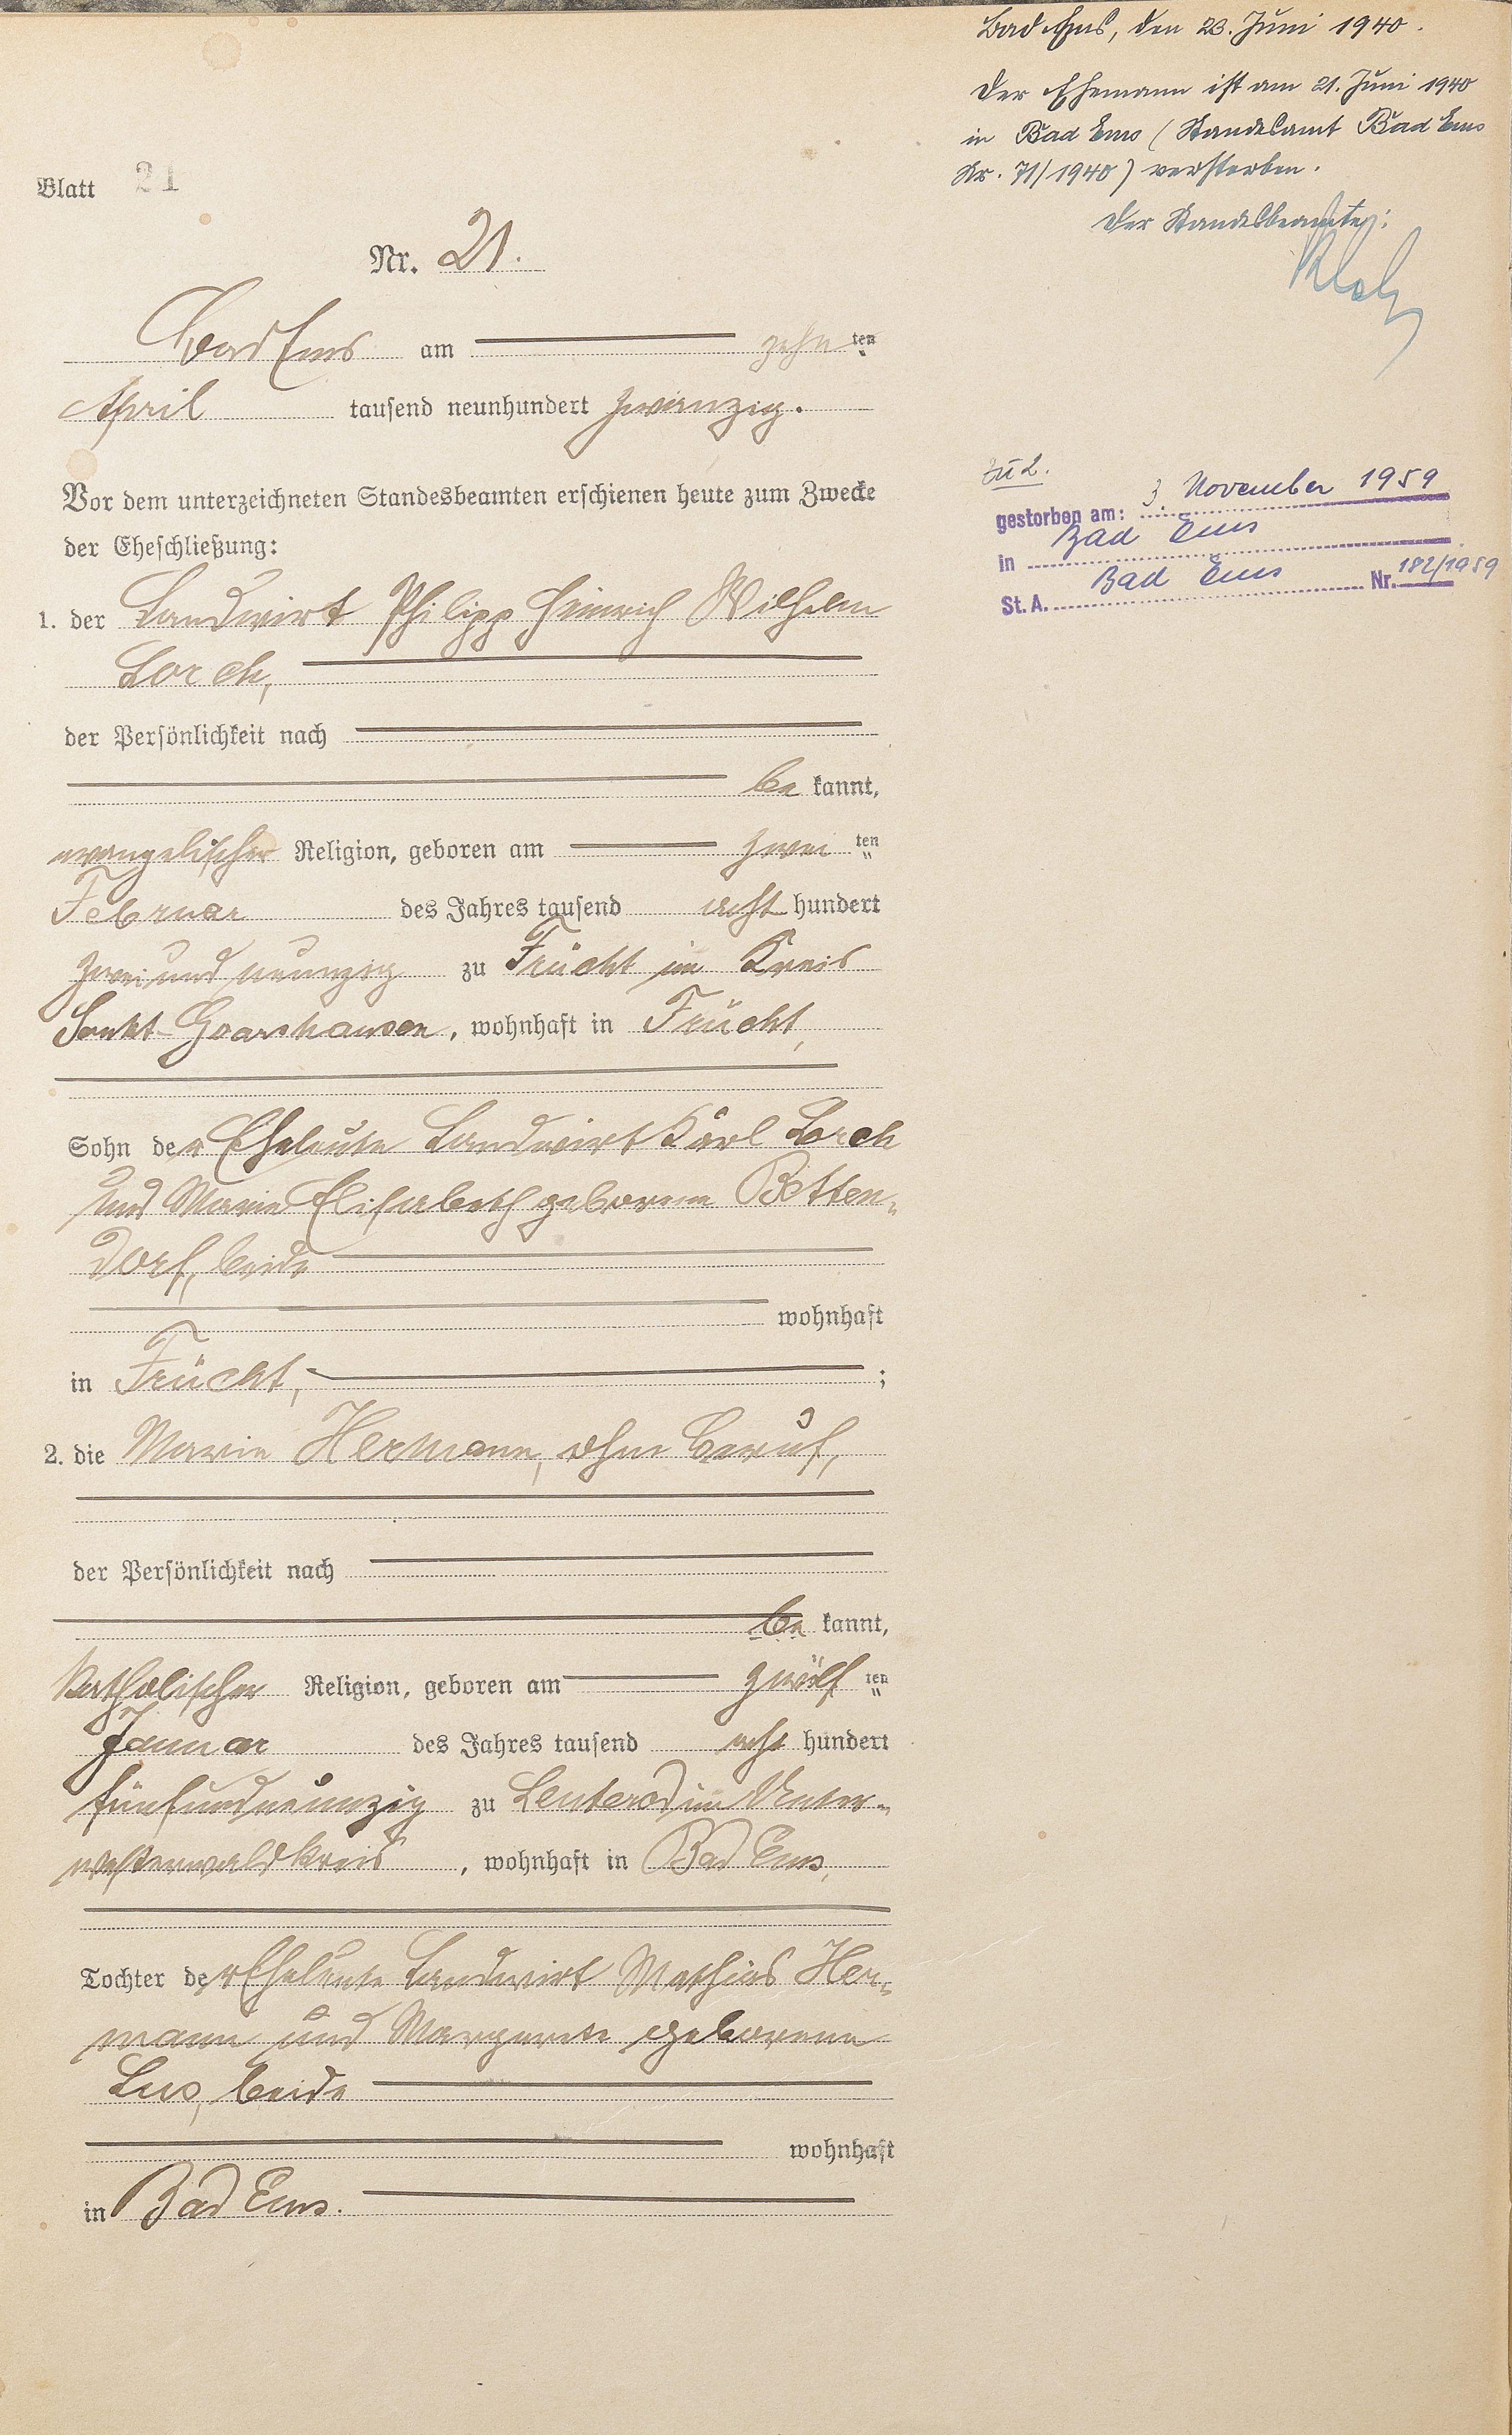 Bad Ems, den 23. Juni 1940.
Der Ehemann ist am 21. Juni 1940
in Bad Ems (Standesamt Bad Ems
Nr. 71/1940) verstorben.
Der Standesbeamte:
Blatt 21
Nr. 21.
Bad Ems am zehn ten
April tausend neunhundert zwanzig.
Vor dem unterzeichneten Standesbeamten erschienen heute zum Zwecke
der Eheschließung:
1. der Landwirt Philipp Heinrich Wilhelm
Lorch,
der Persönlichkeit nach
be kannt,
evangelischer Religion, geboren am zwei ten
Februar des Jahres tausend acht hundert
zwei und neunzig zu Frücht im Kreis
Sankt-Goarshausen, wohnhaft in Frücht,
Sohn der Eheleute Landwirt Karl Lorch
und Marie Elisabeth geborene Betten-
dorf, beide
wohnhaft
in Frücht, ;
2. die Marie Hermann, ohne Beruf,
der Persönlichkeit nach
be kannt,
katholischer Religion, geboren am zwölf ten
Januar des Jahres tausend acht hundert
fünfundneunzig zu Leuterod im Unter-
westerwaldkreis, wohnhaft in Bad Ems,
Tochter der Eheleute Landwirt Mathias Her-
mann und Margarete geborene
beide
wohnhaft
in Bad Ems.
zu 2.
gestorben am: 3. November 1959
in Bad Ems
St. A. Bad Ems Nr. 182/1959